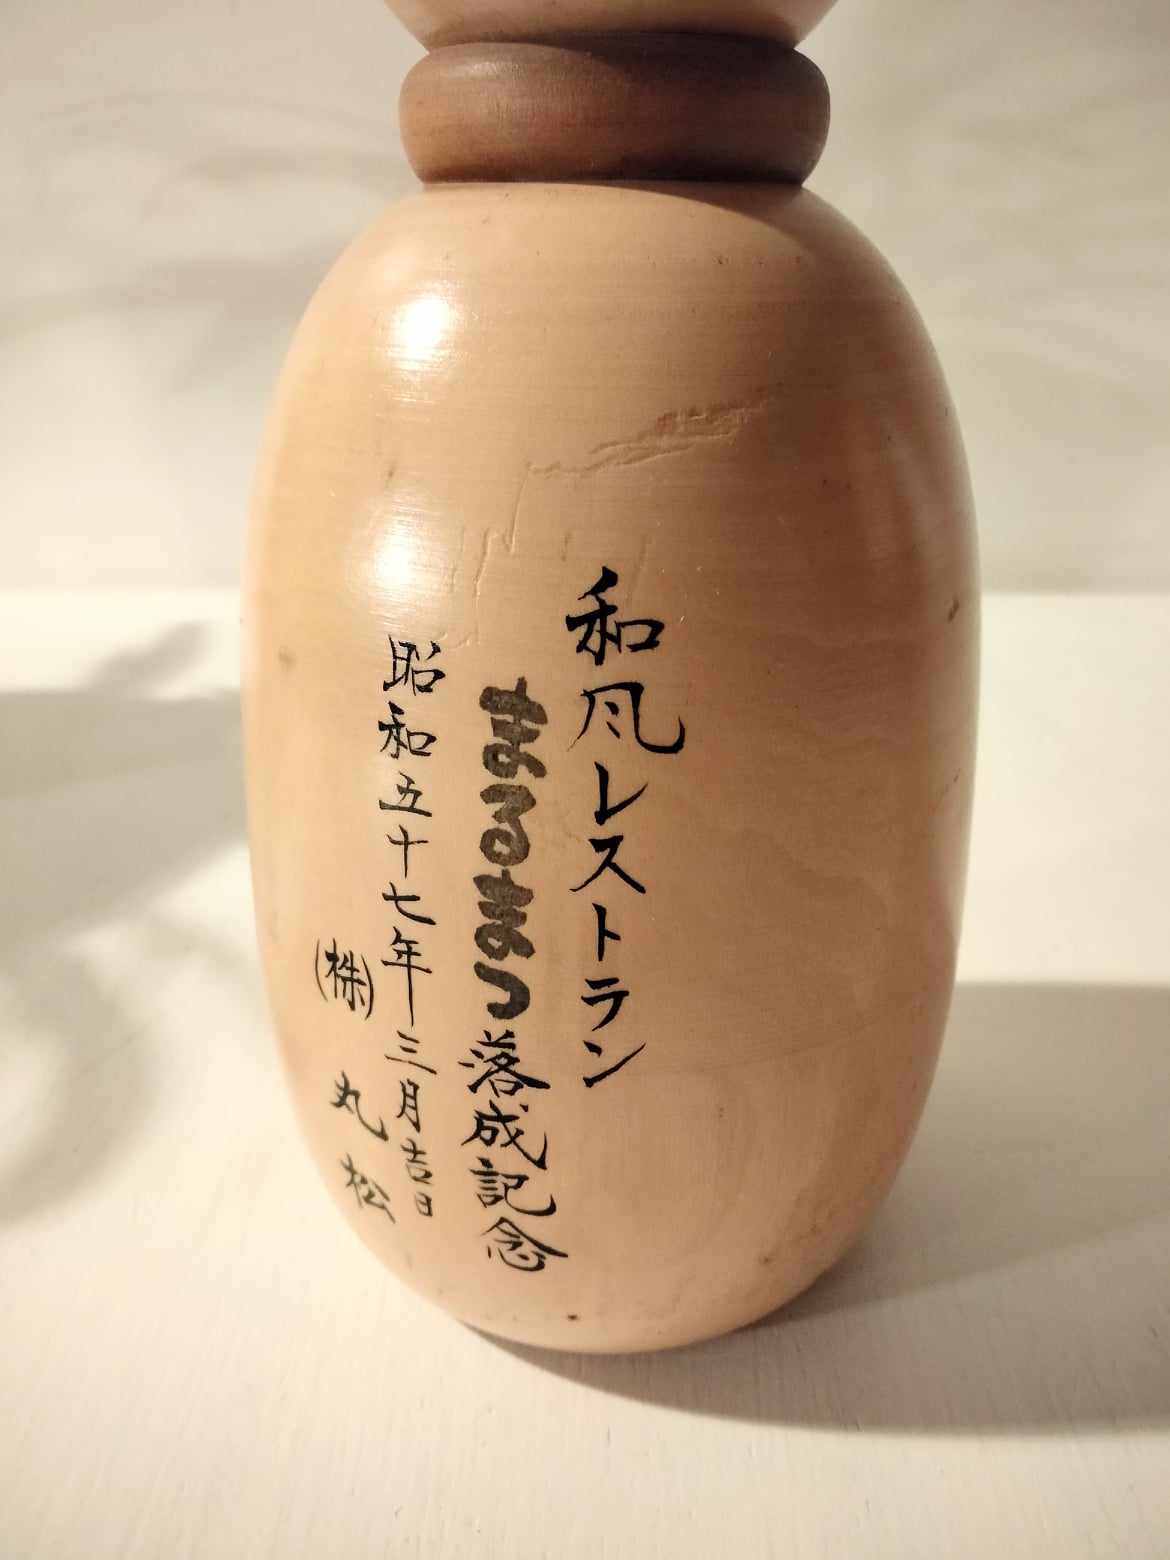 和風レストラン
まるまつ落成記念
昭和五十七年三月吉日
(株) 丸松